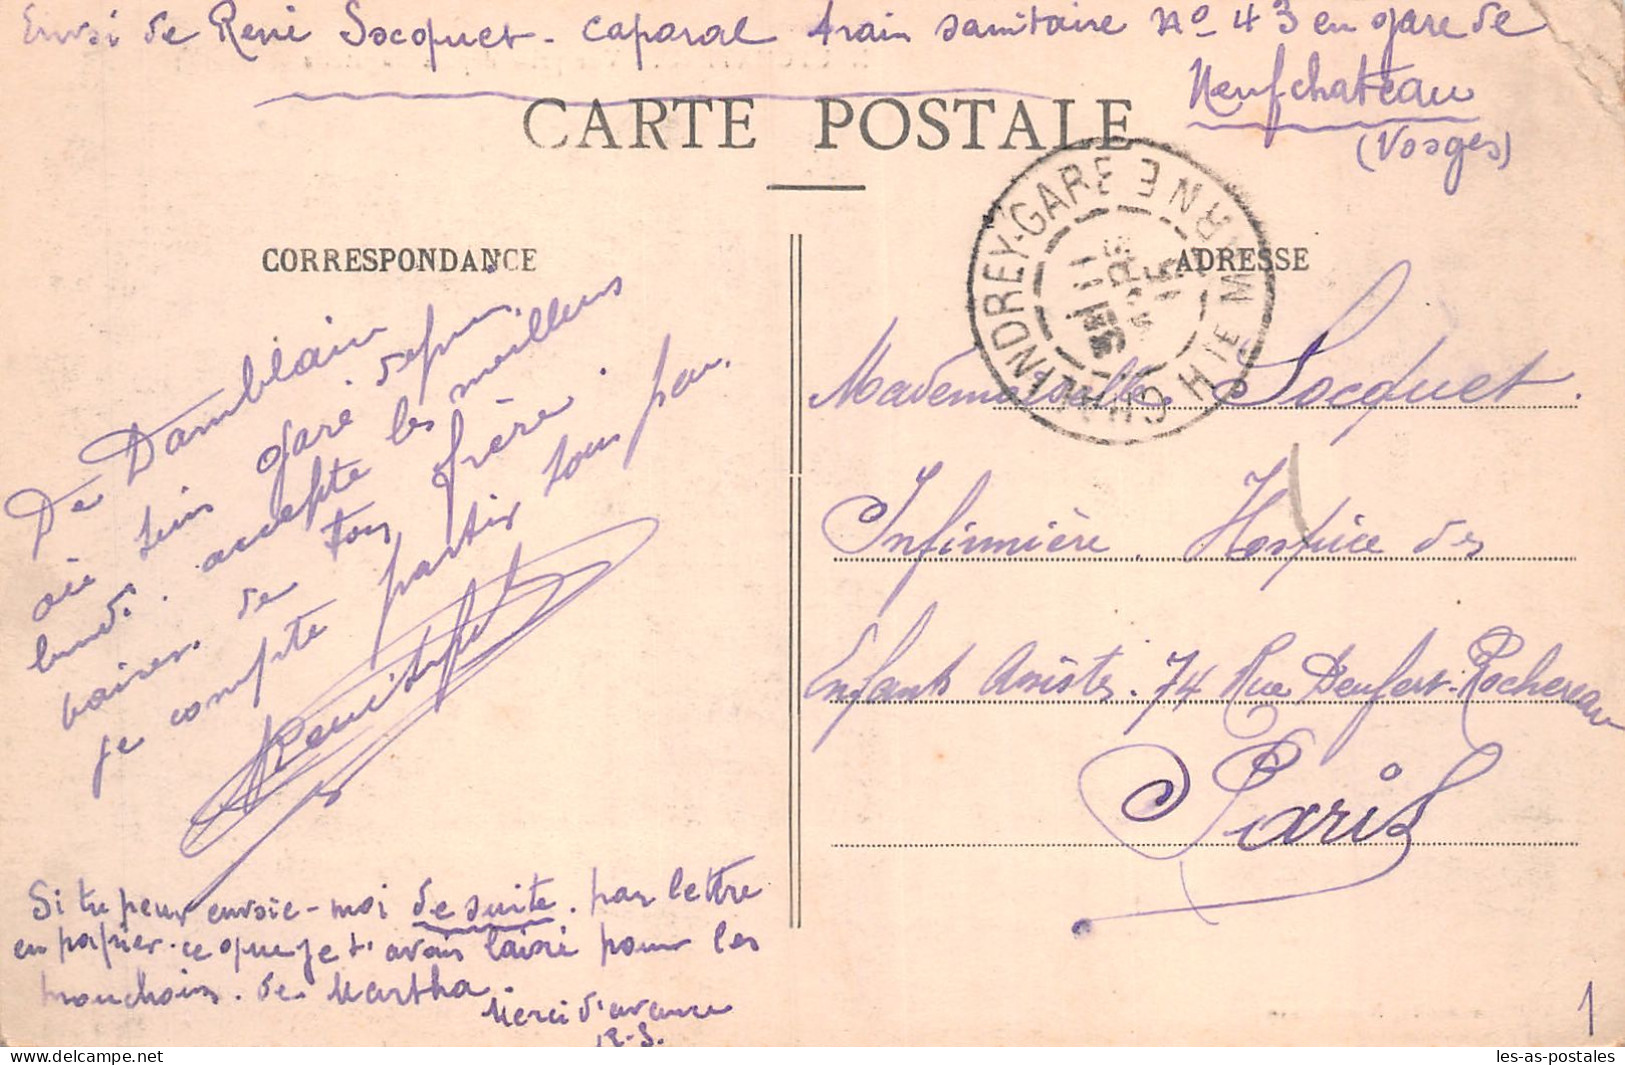 Envoi de René Socquet - caporal train sanitaire No 43 en gare de
Neufchateau
(Vosges)
CARTE POSTALE
CORRESPONDANCE
ADRESSE
VITREY-GARE
De Damblain
où suis gare depuis
lundi. accepte les meilleurs
baisers de ton frère.
je compte partir sous peu.
Si tu peux envoie-moi de suite. par lettre
en papier ce que je t'avais laissé pour les
mouchoirs. de Martha.
Merci d'avance
R.S.
Mademoiselle Socquet.
Infirmière. Hospice des
Enfants Assistés. 74 Rue Denfert-Rochereau
Paris
1
les-as-postales